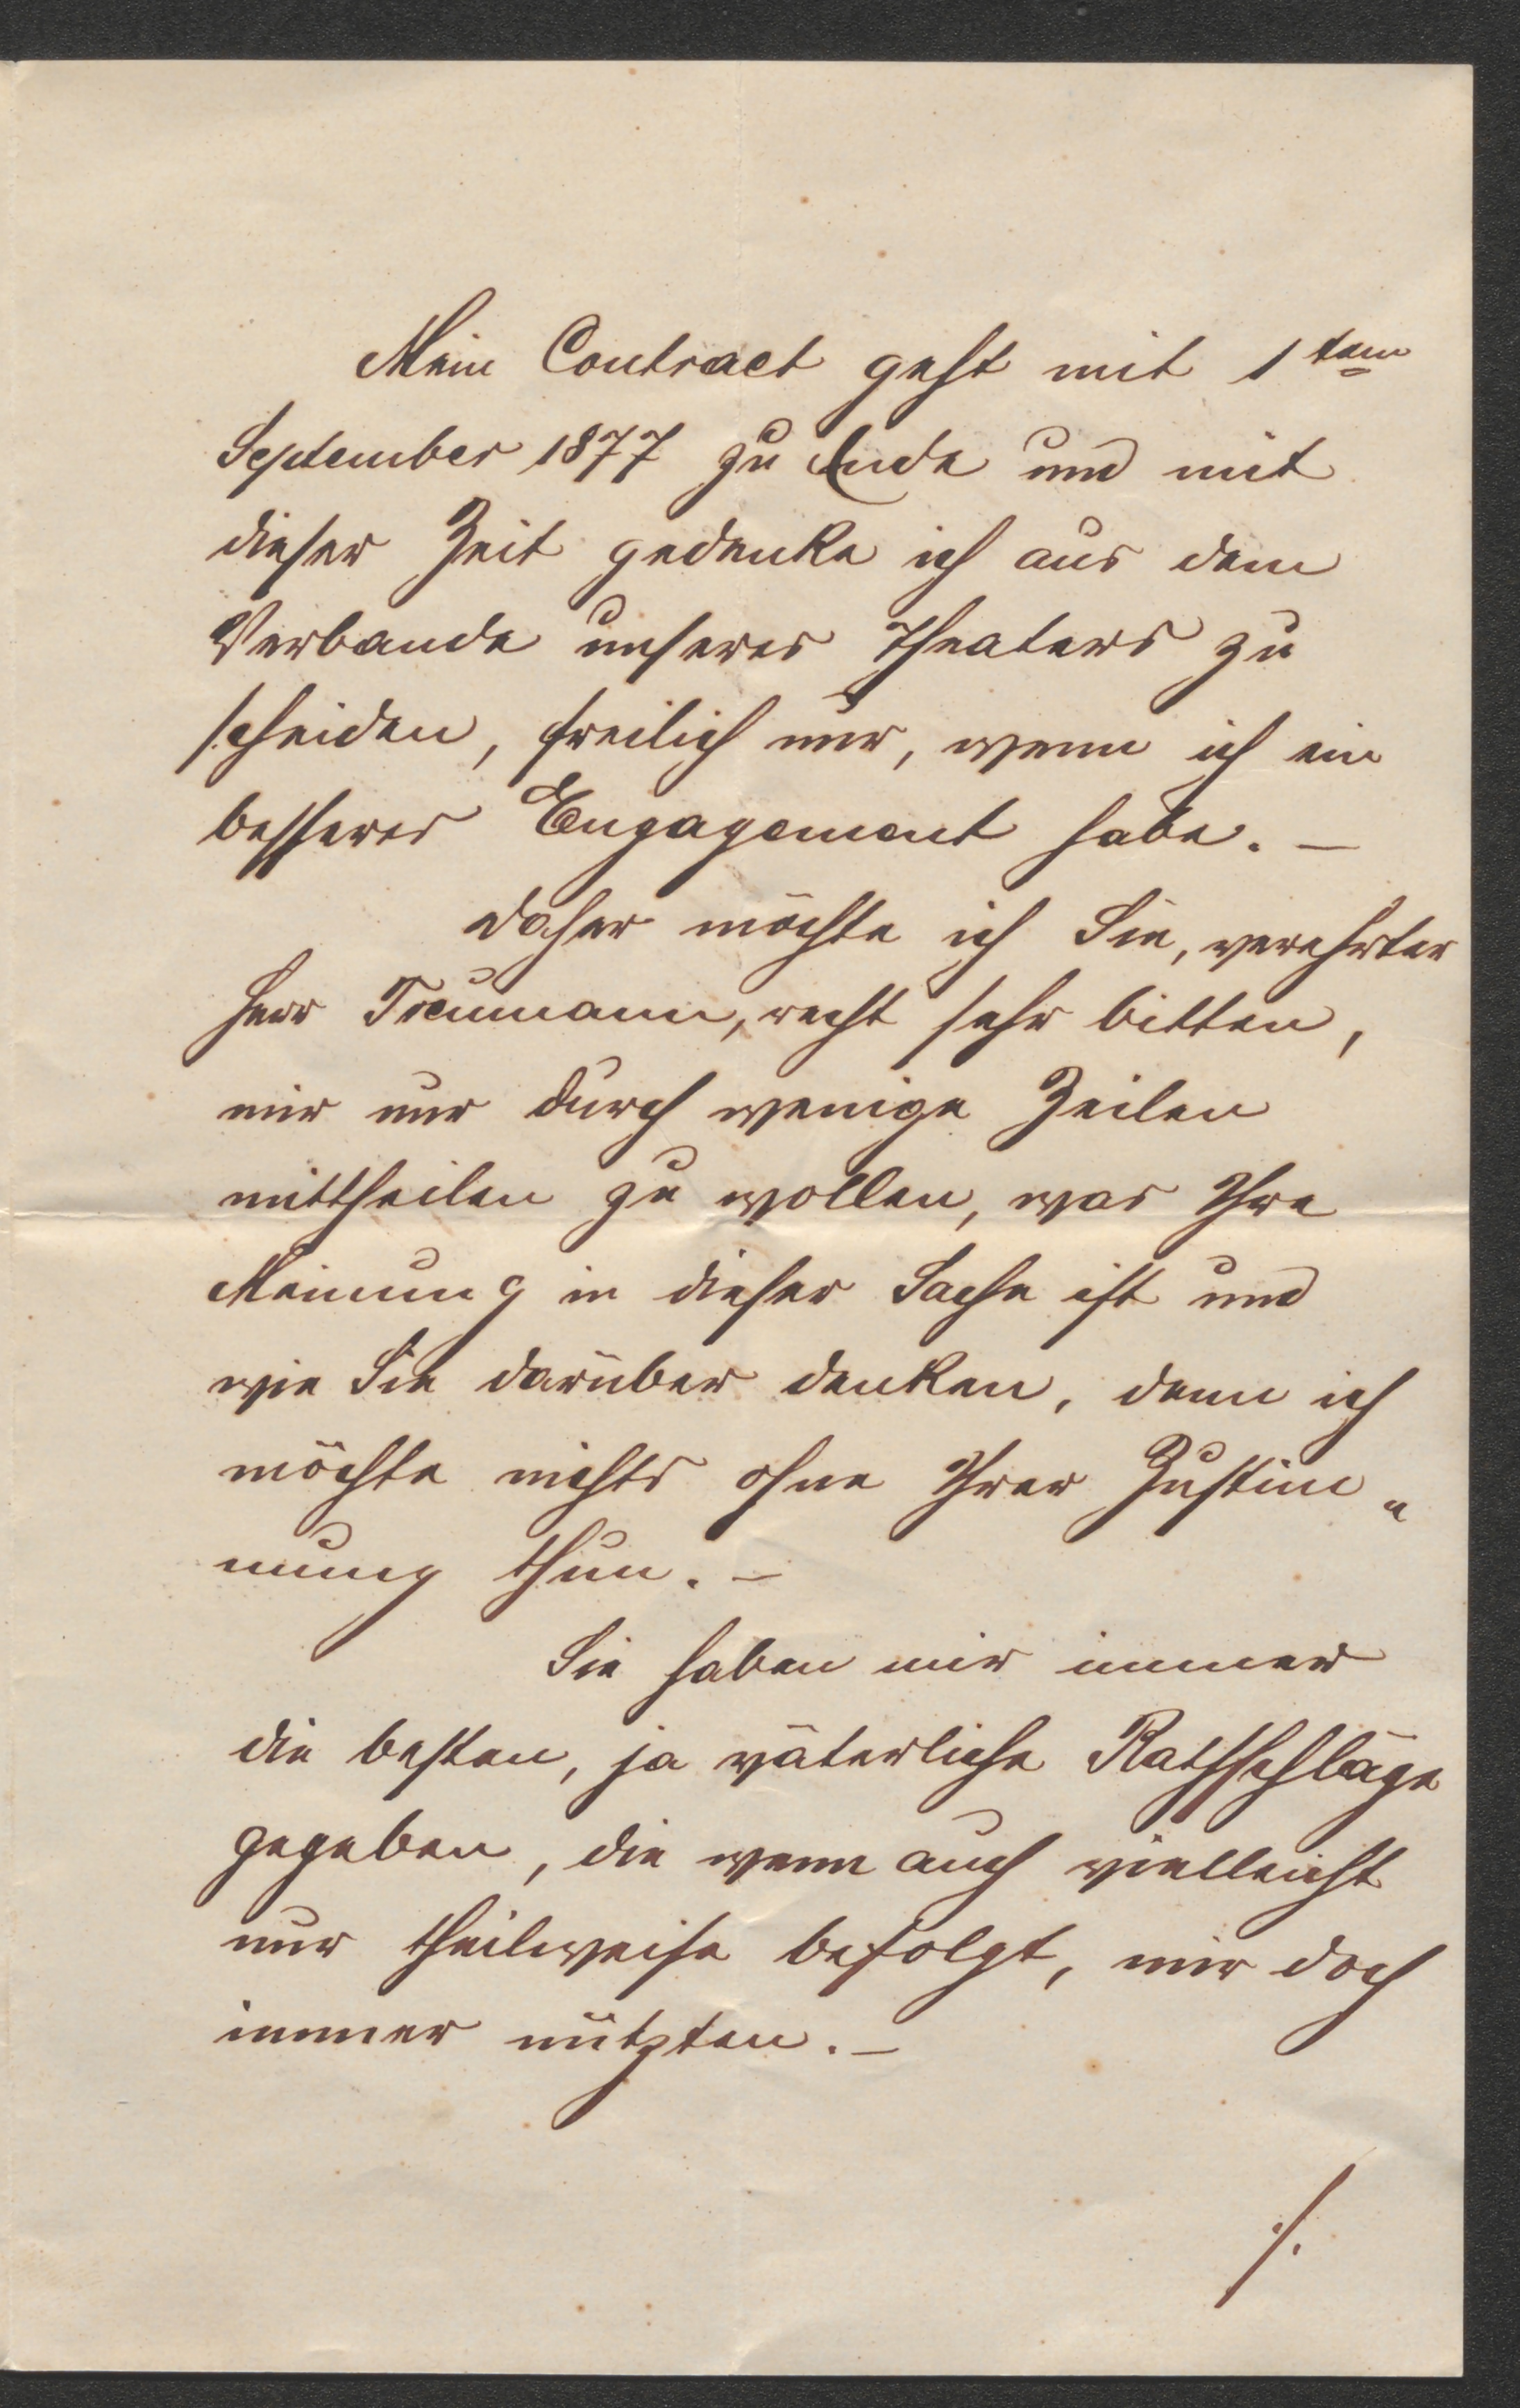 Mein Contract geht mit 1tem
September 1877 zu Ende und mit
dieser Zeit gedenke ich aus dem
Verbande unseres Theaters zu
scheiden, freilich nur, wenn ich ein
besseres Engagement habe. —
Daher möchte ich Sie, verehrter
Herr Treumann, recht sehr bitten,
mir nur durch wenige Zeilen
mittheilen zu wollen, was Ihre
Meinung in dieser Sache ist und
wie Sie darüber denken, denn ich
möchte nichts ohne Ihrer Zustim„
mung thun. —
Sie haben mir immer
die besten, ja väterliche Rathschläge
gegeben, die wenn auch vielleicht
nur theilweise befolgt, mir doch
immer nützten. —
./.